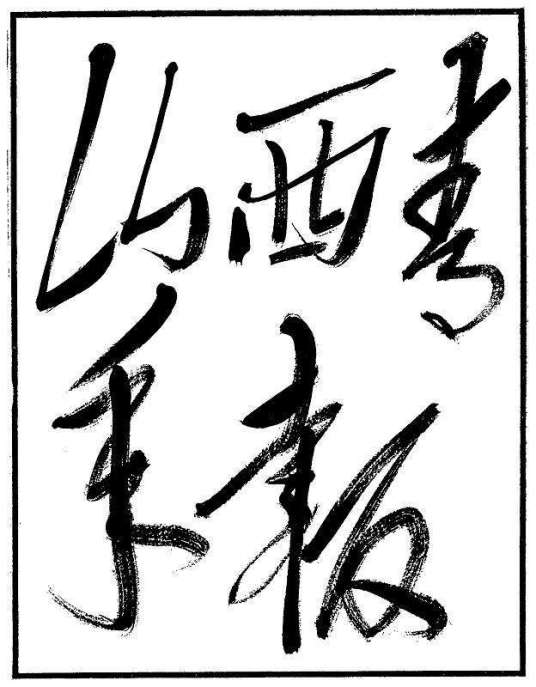 山西青
年報